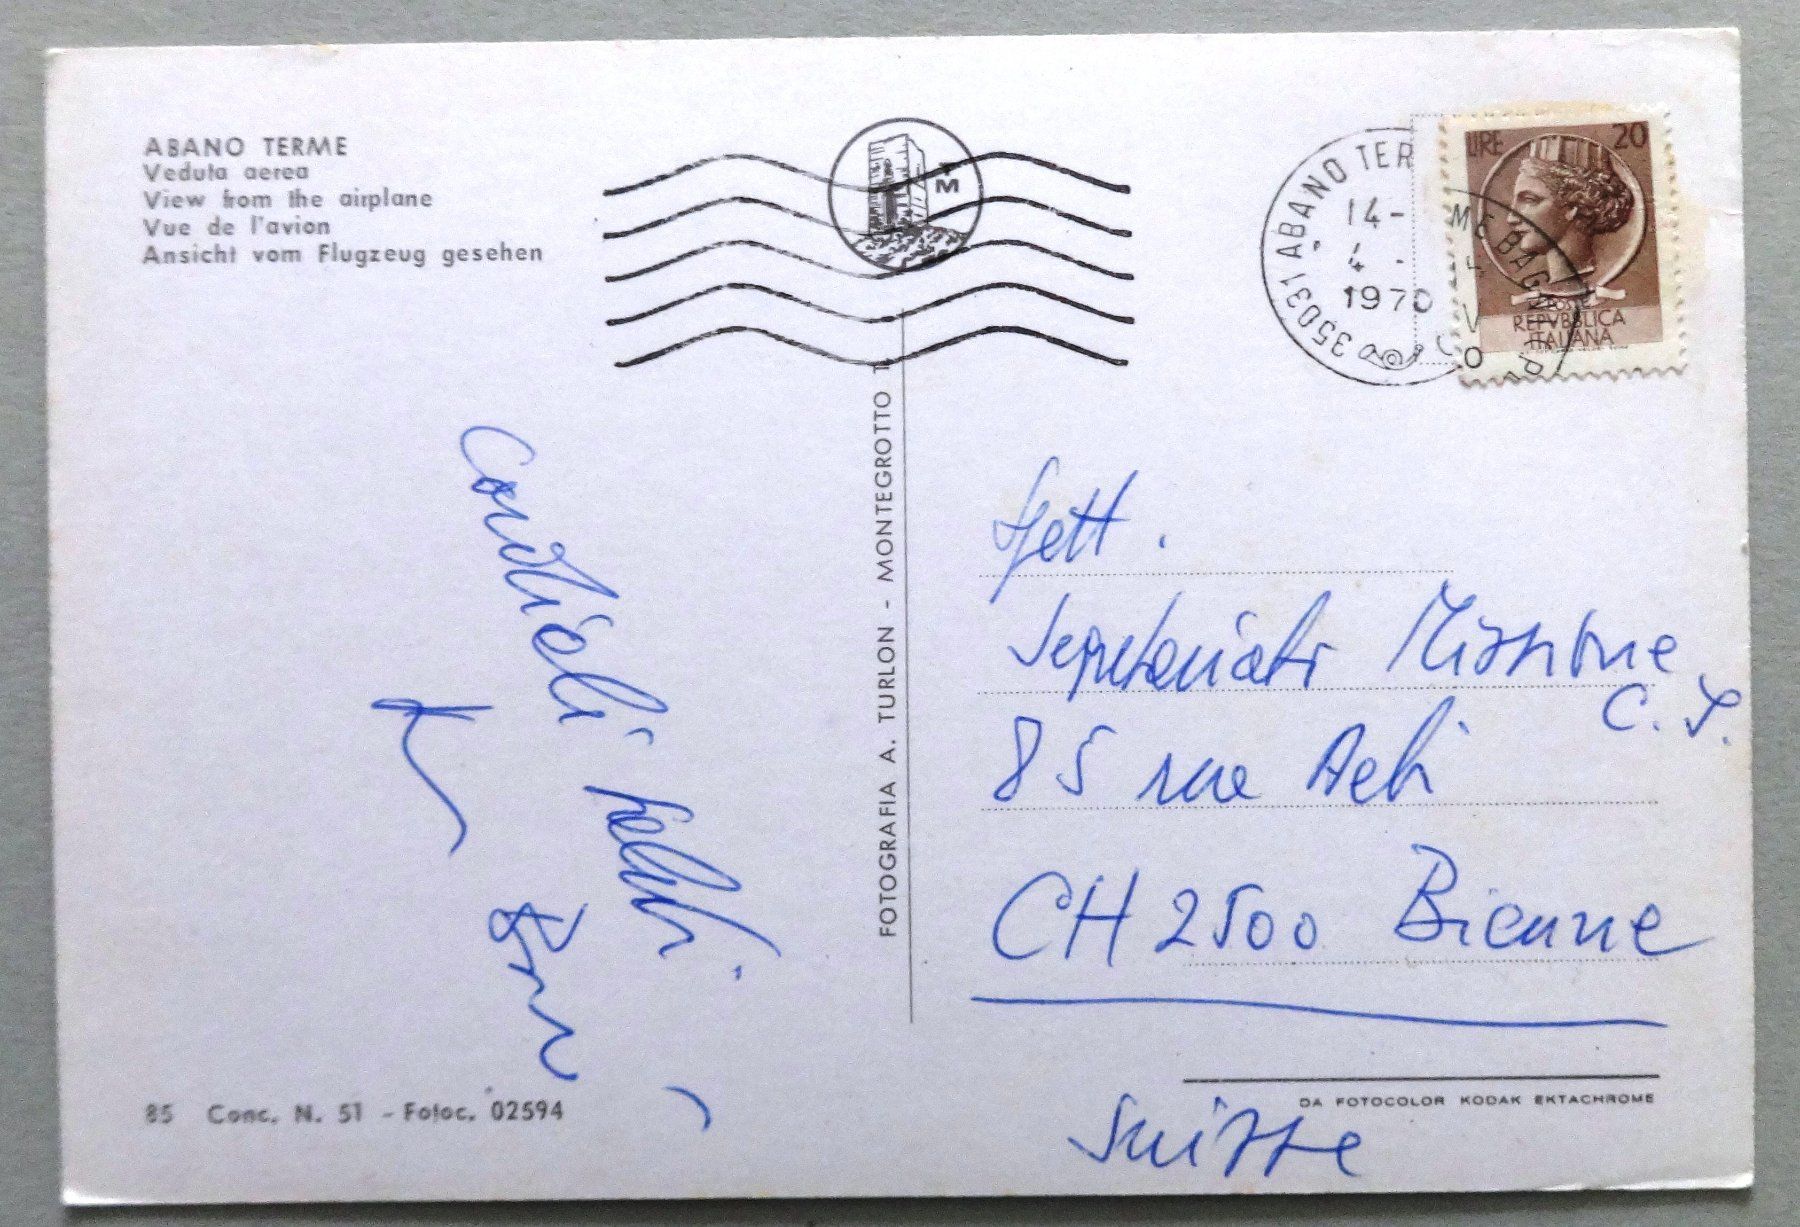 ABANO TERME
Veduta aerea
View from the airplane
Vue de l'avion
Ansicht vom Flugzeug gesehen
M
35031 ABANO TERME BAGNI
14-4-1970
LIRE 20
POSTE
REPVBBLICA
ITALIANA
Cordiali saluti
FOTOGRAFIA A. TURLON - MONTEGROTTO T
Sett.
Segretariato Missione
C. S.
85 rue Aebi
CH 2500 Bienne
Suisse
DA FOTOCOLOR KODAK EKTACHROME
85 Conc. N. 51 - Fotoc. 02594